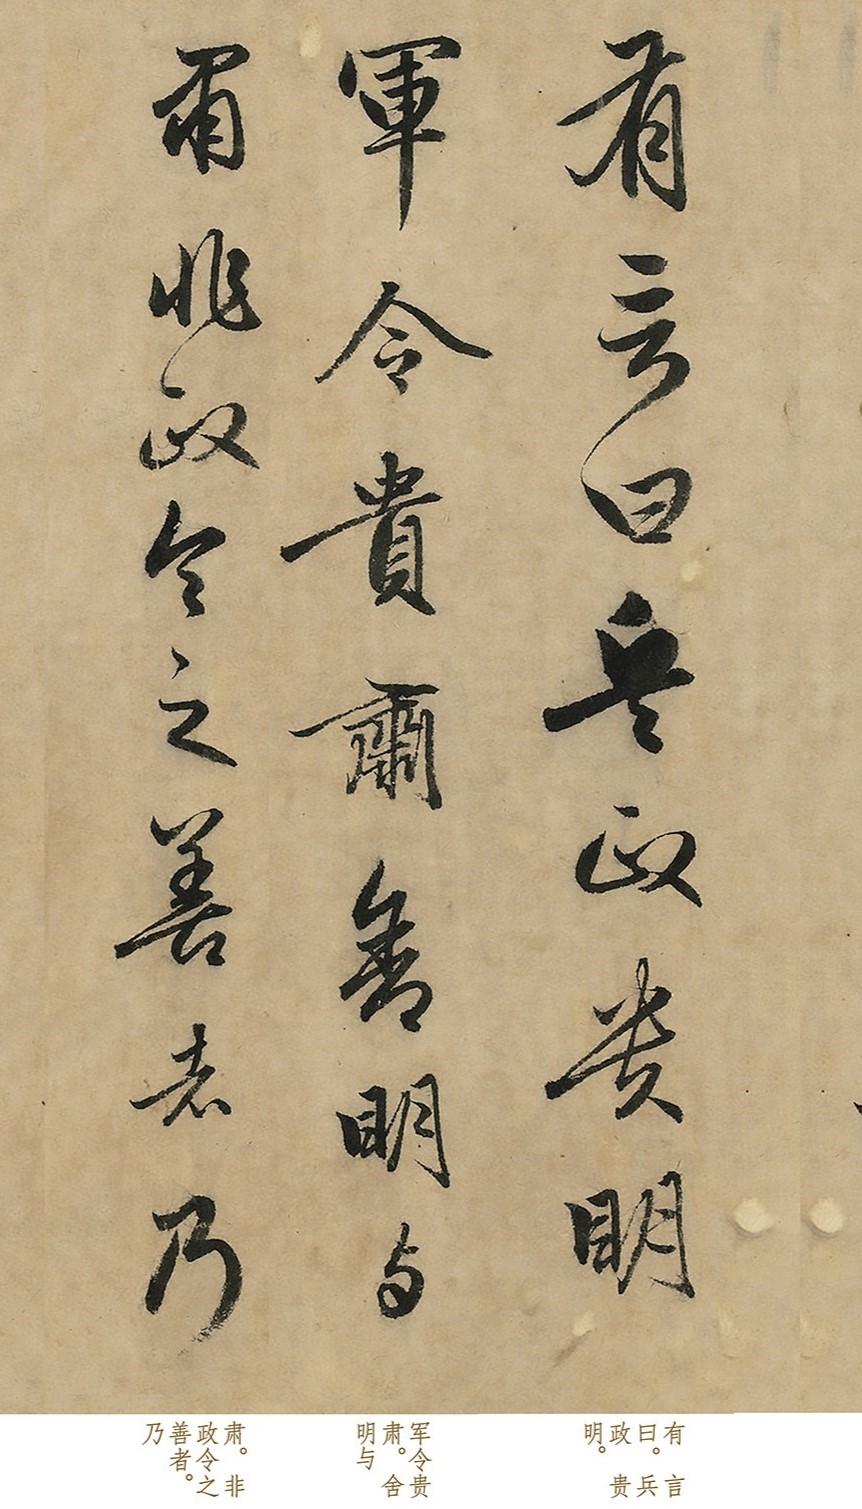 有言曰兵政贵明
軍令貴肅舍明与
肅非政令之善者乃
有 言
曰。兵
政 贵
明。
军令贵
肃。舍
明与
肃。非
政令之
善者。
乃